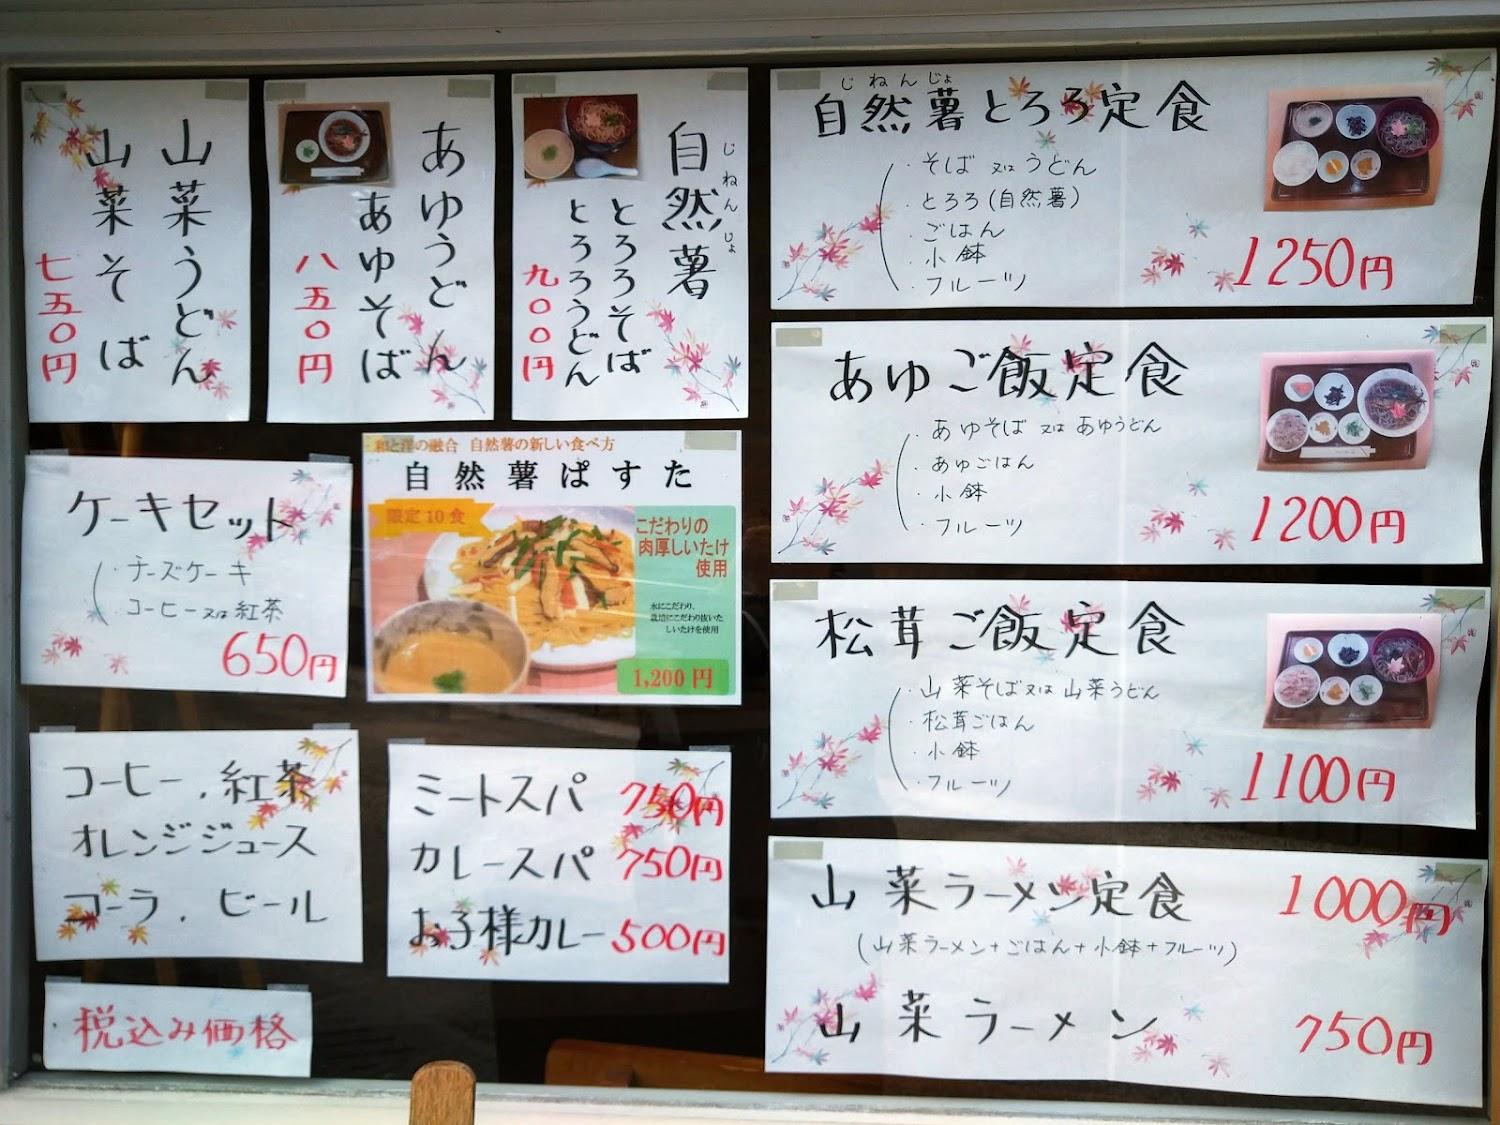 山菜うどん
山菜そば
七五〇円
あゆうどん
あゆそば
八五〇円
自然薯
じねんじょ
とろろそば
とろろうどん
九〇〇円
ケーキセット
・チーズケーキ
・コーヒー又は紅茶
650円
和と洋の融合 自然薯の新しい食べ方
自然薯ぱすた
限定10食
こだわりの
肉厚しいたけ
使用
水にこだわり、
栽培にこだわり抜いた
しいたけを使用
1,200円
コーヒー、紅茶
オレンジジュース
コーラ、ビール
ミートスパ 750円
カレースパ 750円
お子様カレー 500円
税込み価格
じねんじょ
自然薯とろろ定食
・そば 又は うどん
・とろろ(自然薯)
・ごはん
・小鉢
・フルーツ
1250円
あゆご飯定食
・あゆそば 又は あゆうどん
・あゆごはん
・小鉢
・フルーツ
1200円
松茸ご飯定食
・山菜そば又は山菜うどん
・松茸ごはん
・小鉢
・フルーツ
1100円
山菜ラーメン定食 1000円
(山菜ラーメン+ごはん+小鉢+フルーツ)
山菜ラーメン 750円